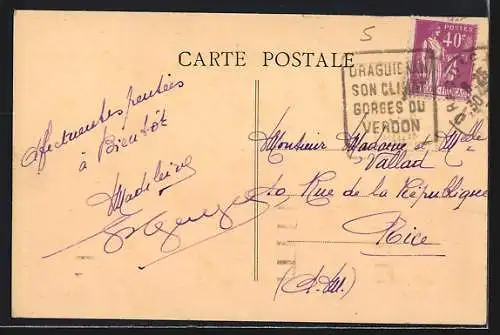 5
CARTE POSTALE
POSTES
40c
DRAGUIGNAN
SON CLIMAT
GORGES DU
VERDON
Affectueuses pensées
à Bientôt
Madeleine
Monsieur Madame et Melle
Vallad
10 Rue de la République
Nice
(A.M.)